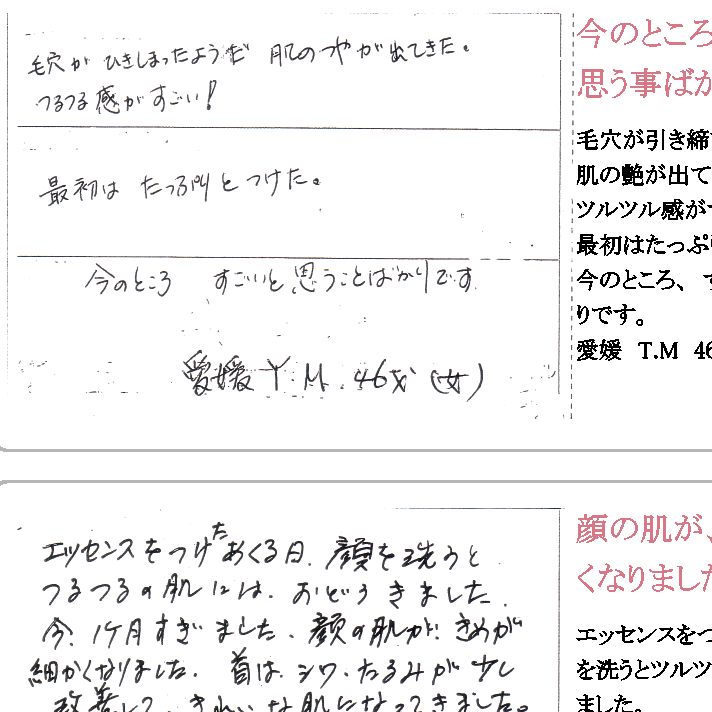 毛穴が ひきしまったようだ 肌のつやが出てきた。
つるつる感がすごい!
最初は たっぷりとつけた。
今のところ すごいと思うことばかりです
愛媛 Y.M. 46才(女)
今のところ
思う事ばか
毛穴が引き締
肌の艶が出て
ツルツル感が
最初はたっぷり
今のところ、す
りです。
愛媛 T.M 46
エッセンスをつけたあくる日、顔を洗うと
つるつるの肌には、おどろきました。
今、1ヶ月すぎました。顔の肌が、きめが
細かくなりました。首は、シワ・たるみが少し
改善して、きれいな肌になってきました。
顔の肌が、
くなりました
エッセンスをつ
を洗うとツルツ
ました。